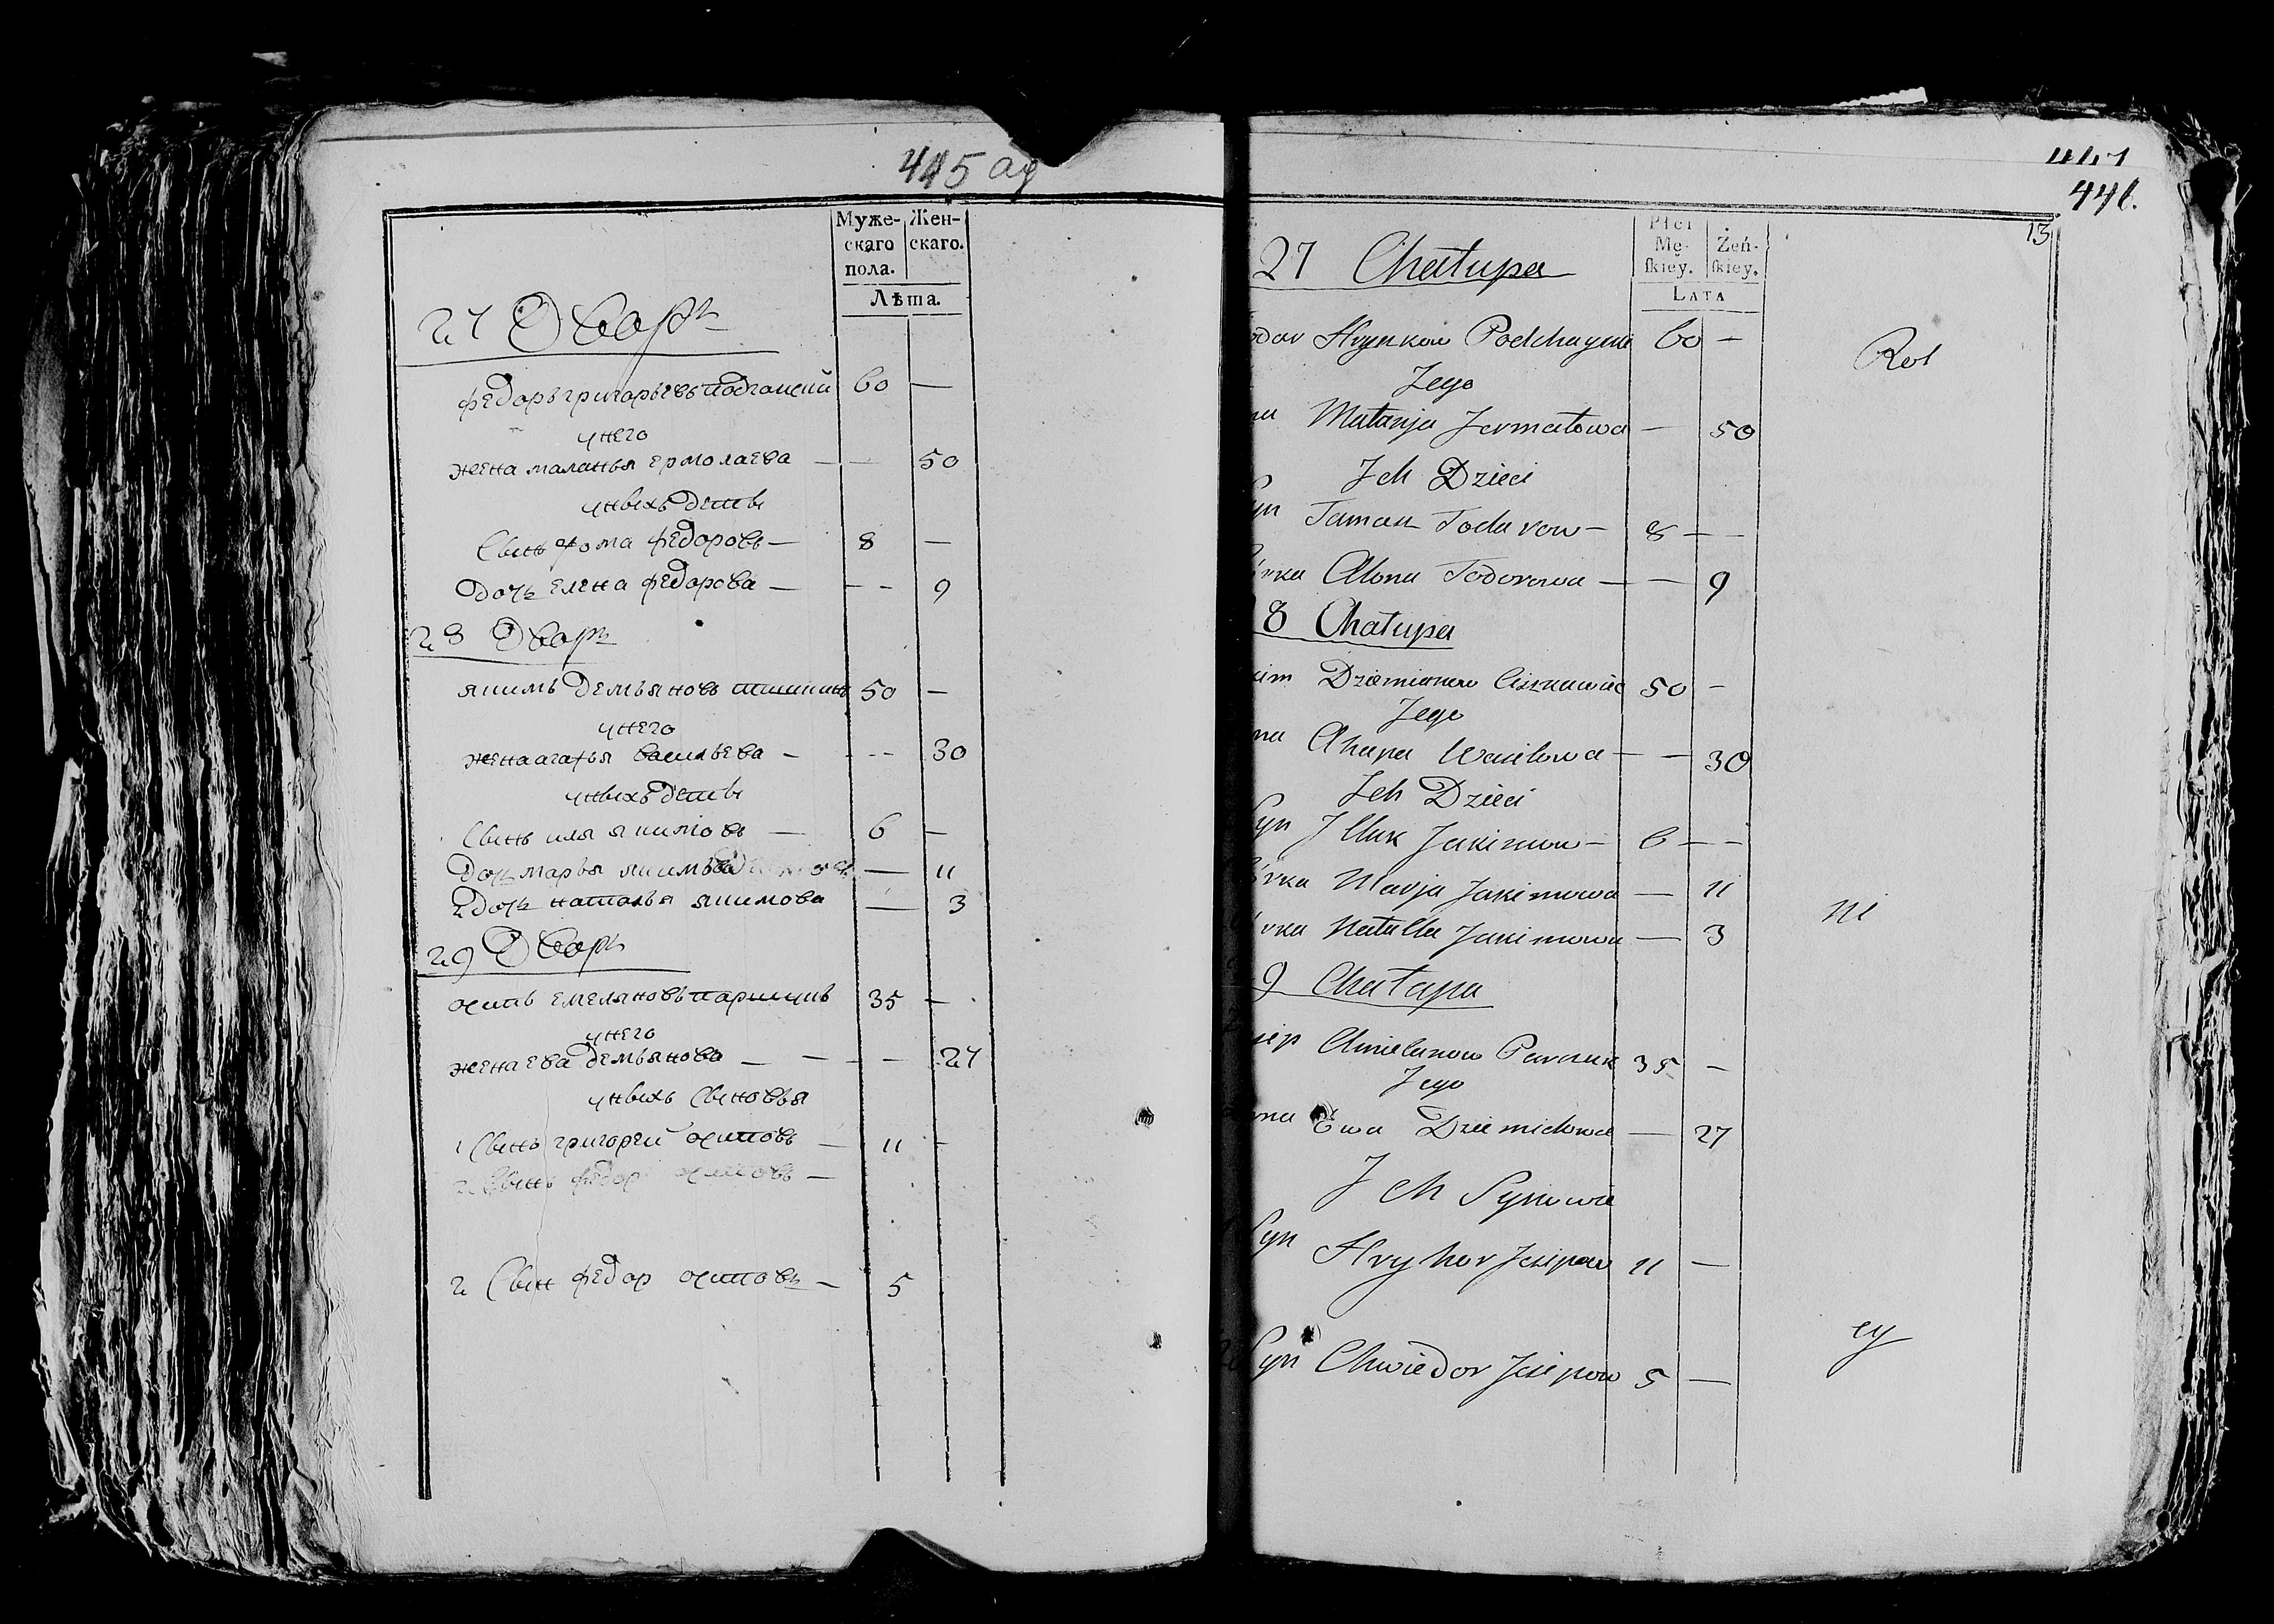 445 об
Муже-
скаго
пола.
Жен-
скаго.
Лѣта.
27 Дворъ
федоръ григорьевъ подгаиский 60 —
у него
жена маланья ермолаева — — 50
у ныхъ дети
Сынъ фома федоровъ — 8 —
дочь елена федорова — — — 9
28 Дворъ
якимъ демьяновъ 50 —
у него
жена агафья васильева — — — 30
у ныхъ дети
Сынъ иля якимовъ — 6 —
дочь марья якимова — 11
2 дочь наталья якимова — 3
29 Дворъ
осипъ емеляновъ паршукъ 35 —
у него
жена ева демьянова — — — — 27
у ныхъ Сыновья
1 Сынъ григорей осиповъ — 11 -
2 Сынъ федор осиповъ —
2 Сын федор осиповъ — 5
446.
13
Płci
Mę-
skiey.
Żeń-
skiey.
LATA
27 Chałupa
odor Hrynkow Podhayski 60 —
Jego
na Małanja Jermałowa — 50
Ich Dzieci
yn Tamasz Todarow — 8 — —
órka Alona Todorowa — — 9
8 Chałupa
kim Dziemianow 50 —
Jego
na Ahapa Wasilowa — — 30
Ich Dzieci
Syn Illuk Jakimow — 6 — —
órka Marja Jakimowa — 11
órka Natalla Jakimowa — 3
9 Chałupa
siep Amielanow Parszuk 35 —
Jego
ona Ewa Dziemidowa — 27
Ich Synowie
Syn Hryhor Jesipow 11 —
2 Syn Chwiedor Jesipow 5 —
Rol
ni
cy